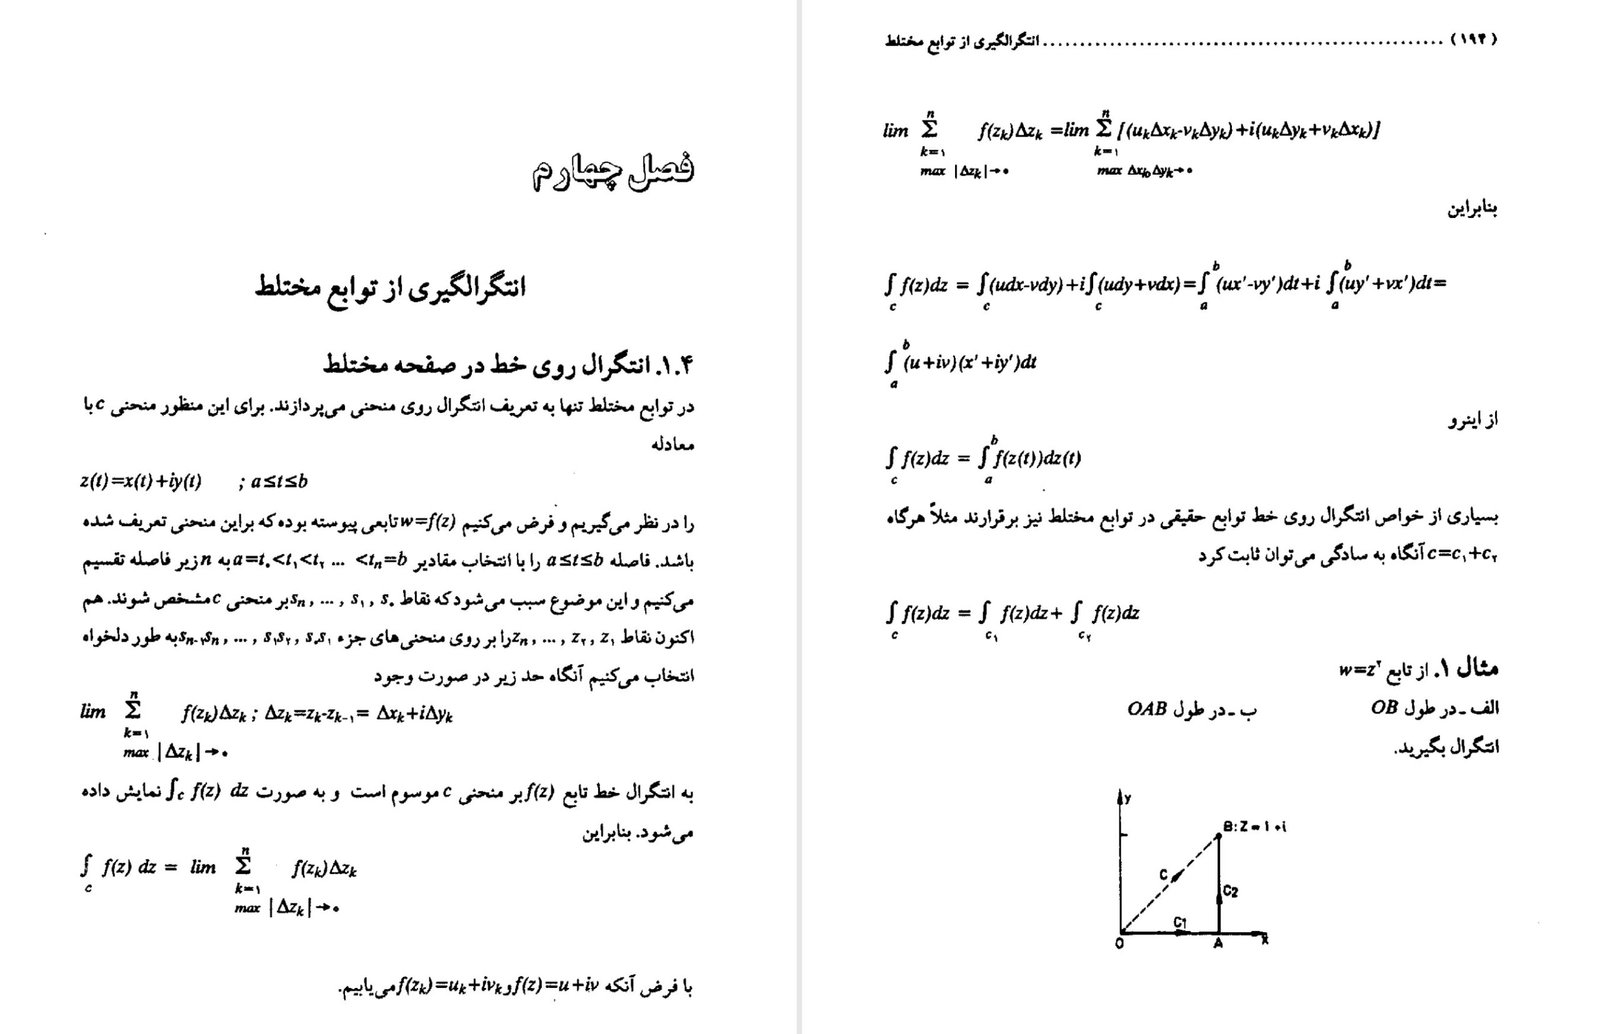 فصل چهارم
انتگرالگیری از توابع مختلط
۱.۴. انتگرال روی خط در صفحه مختلط
در توابع مختلط تنها به تعریف انتگرال روی منحنی می‌پردازند. برای این منظور منحنی c با
معادله
z(t)=x(t)+iy(t) ; a≤t≤b
را در نظر می‌گیریم و فرض می‌کنیم w=f(z) تابعی پیوسته بوده که براین منحنی تعریف شده
باشد. فاصله a≤t≤b را با انتخاب مقادیر a=t۰<t۱<t۲ ... <tn=b به n زیر فاصله تقسیم
می‌کنیم و این موضوع سبب می‌شود که نقاط s۰ , s۱ , ... , sn بر منحنی c مشخص شوند. هم
اکنون نقاط z۱ , z۲ , ... , zn را بر روی منحنی‌های جزء s۰s۱ , s۱s۲ , ... , sn-۱sn به طور دلخواه
انتخاب می‌کنیم آنگاه حد زیر در صورت وجود
lim Σ f(zk)Δzk ; Δzk=zk-zk-۱= Δxk+iΔyk
n
k=۱
max |Δzk|→۰
به انتگرال خط تابع f(z) بر منحنی c موسوم است و به صورت ∫c f(z) dz نمایش داده
می‌شود. بنابراین
∫ f(z) dz = lim Σ f(zk)Δzk
n
c k=۱
max |Δzk|→۰
با فرض آنکه f(z)=u+iv و f(zk)=uk+ivk می‌یابیم.
(۱۹۴) ...................................................... انتگرالگیری از توابع مختلط
lim Σ f(zk)Δzk =lim Σ [(ukΔxk-vkΔyk)+i(ukΔyk+vkΔxk)]
n n
k=۱ k=۱
max |Δzk|→۰ max Δxk,Δyk→۰
بنابراین
∫ f(z)dz = ∫(udx-vdy)+i∫(udy+vdx)=∫(ux'-vy')dt+i ∫(uy'+vx')dt=
b b
c c c a a
∫(u+iv)(x'+iy')dt
b
a
از اینرو
∫ f(z)dz = ∫f(z(t))dz(t)
b
c a
بسیاری از خواص انتگرال روی خط توابع حقیقی در توابع مختلط نیز برقرارند مثلاً هرگاه
c=c۱+c۲ آنگاه به سادگی می‌توان ثابت کرد
∫ f(z)dz = ∫ f(z)dz+ ∫ f(z)dz
c c۱ c۲
مثال ۱. از تابع w=z۲
الف ـ در طول OB ب ـ در طول OAB
انتگرال بگیرید.
y
B: Z = 1 + i
C
C2
C1
O A x